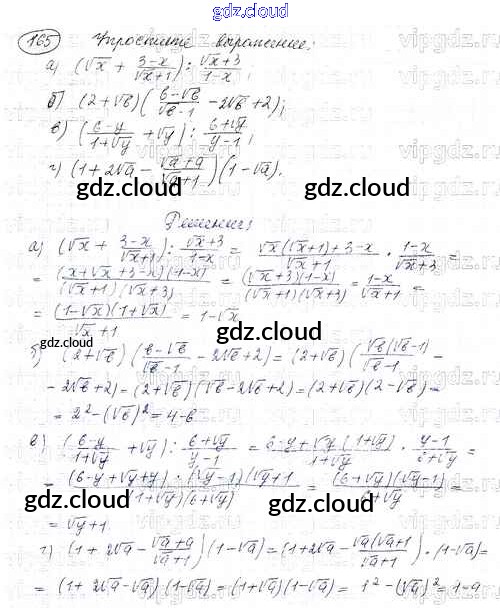 gdz.cloud
165 Упростите выражение:
а) (√x + (3-x)/(√x+1)) : (√x+3)/(1-x)
б) (2+√b)((b-√b)/(√b-1) - 2√b + 2);
в) ((6-y)/(1+√y) + √y) : (6+√y)/(y-1);
г) (1+2√a - (√a+a)/(√a+1))(1-√a).
gdz.cloud gdz.cloud
Решение:
а) (√x + (3-x)/(√x+1)) : (√x+3)/(1-x) = (√x(√x+1)+3-x)/(√x+1) · (1-x)/(√x+3) =
= ((x+√x+3-x)(1-x))/((√x+1)(√x+3)) = ((√x+3)(1-x))/((√x+1)(√x+3)) = (1-x)/(√x+1) =
= ((1-√x)(1+√x))/(√x+1) = 1-√x
gdz.cloud gdz.cloud
б) (2+√b)((b-√b)/(√b-1) - 2√b+2) = (2+√b)((√b(√b-1))/(√b-1) -
- 2√b+2) = (2+√b)(√b-2√b+2) = (2+√b)(2-√b) =
= 2² - (√b)² = 4-b
в) ((6-y)/(1+√y) + √y) : (6+√y)/(y-1) = (6-y+√y(1+√y))/(1+√y) · (y-1)/(6+√y) =
= ((6-y+√y+y)·(√y-1)(√y+1))/((1+√y)(6+√y)) = ((6+√y)(√y-1))/(6+√y) =
gdz.cloud gdz.cloud
= √y+1
г) (1+2√a - (√a+a)/(√a+1))(1-√a) = (1+2√a - (√a(√a+1))/(√a+1))·(1-√a) =
= (1+2√a-√a)(1-√a) = (1+√a)(1-√a) = 1² - (√a)² = 1-a
gdz.cloud